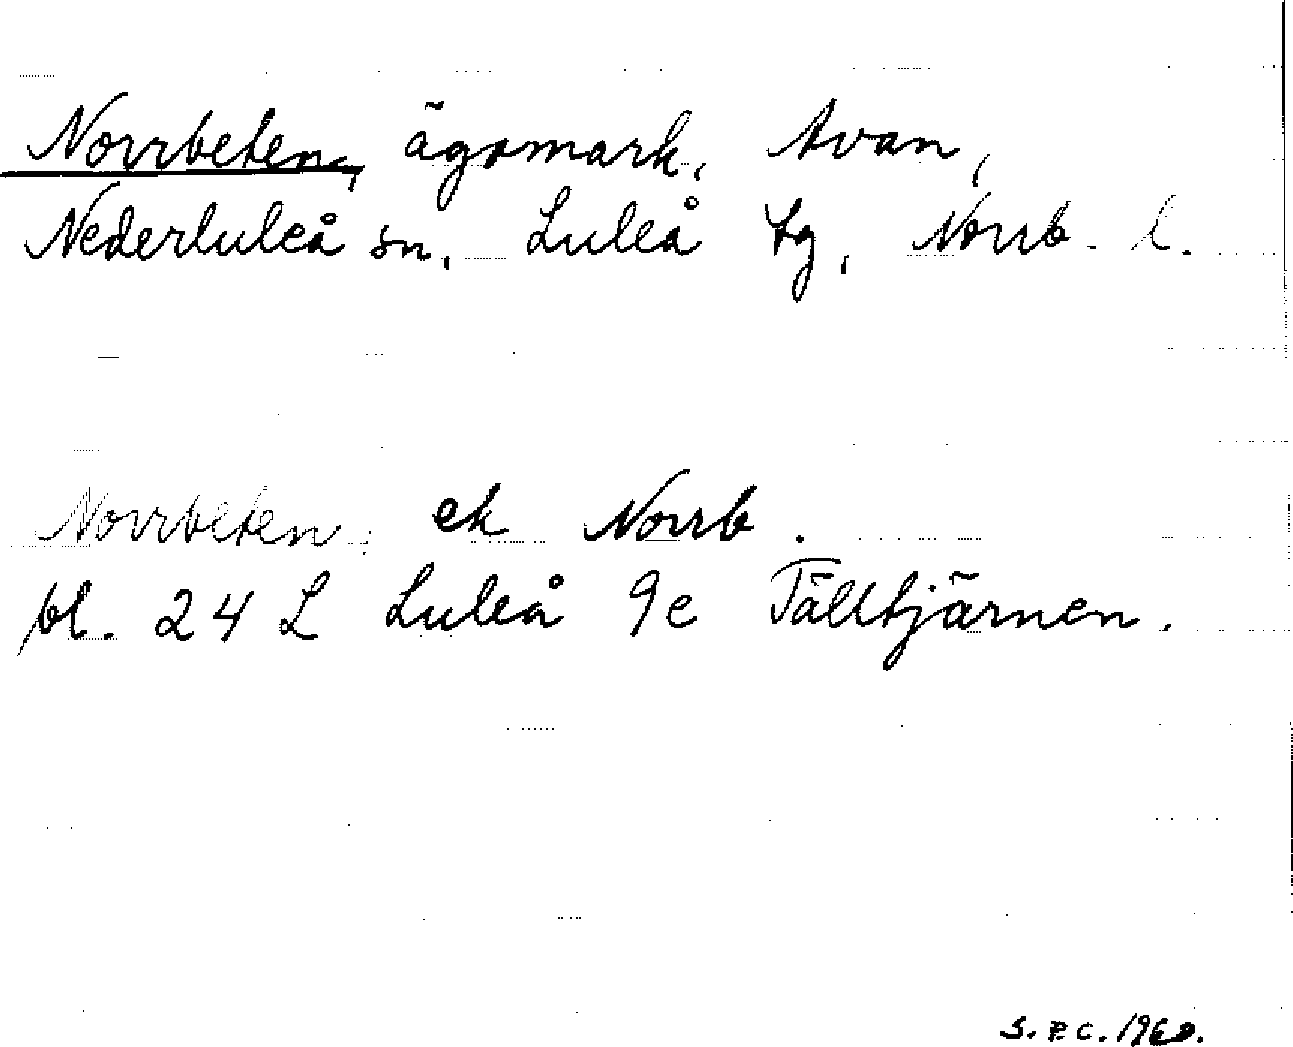 Norrbeten, ägomark, Avan,
Nederluleå sn, Luleå tg, Norrb. l.
Norrbeten, ek Norrb.
bl. 24 L Luleå 9e Tälltjärnen.
S.P.C. 1960.